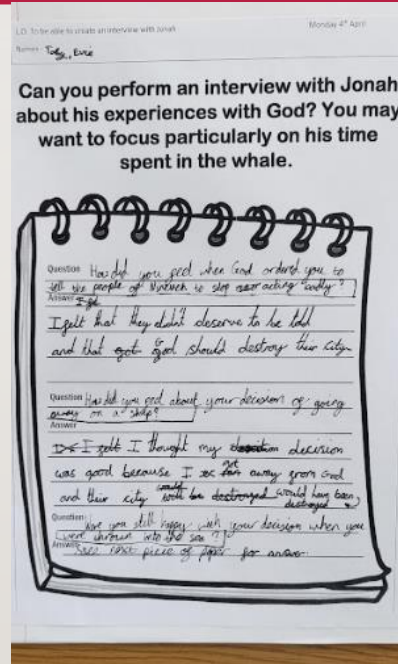 L.O. To be able to create an interview with Jonah
Monday 4th April
Names - Toby, Evie
Can you perform an interview with Jonah
about his experiences with God? You may
want to focus particularly on his time
spent in the whale.
Question How did you feel when God ordered you to
tell the people of Nineveh to stop acting badly?
Answer
I felt that they didn't deserve to be told
and that God should destroy their city.
Question How did you feel about your decision of going
away on a ship?
Answer
I felt I thought my decision
was good because I got away from God
and their city would have been
destroyed
Question Were you still happy with your decision when you
were thrown into the sea?
Answer See next piece of paper for answer